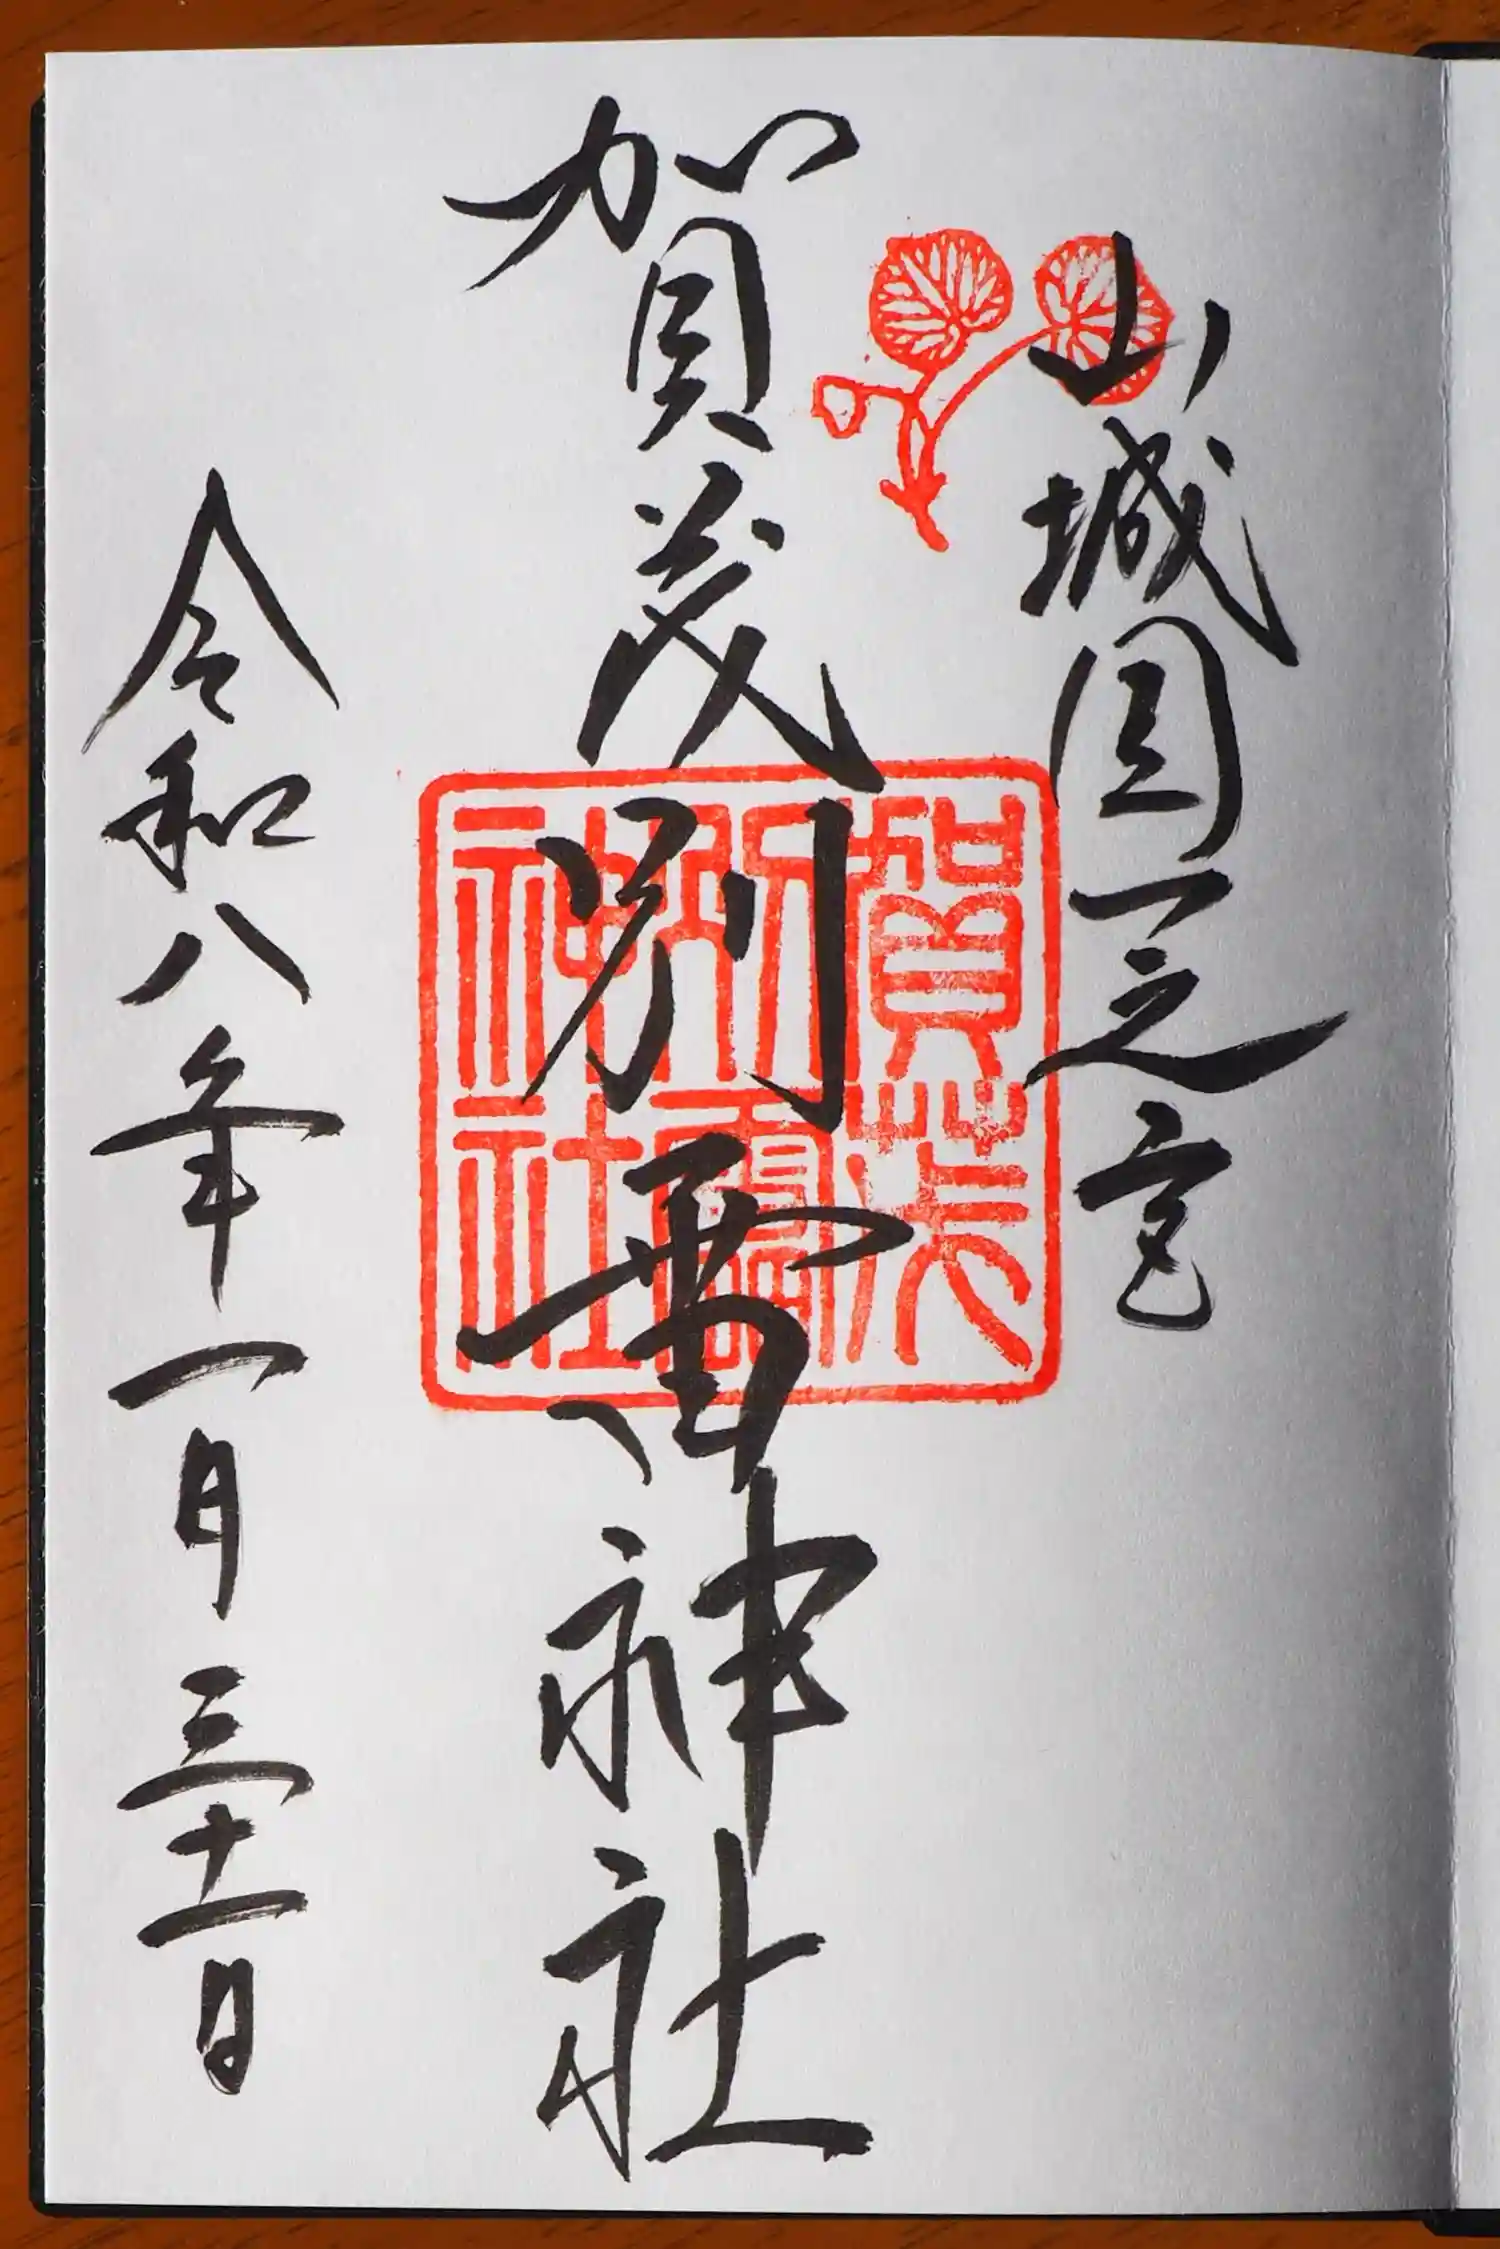 山城国一之宮
賀茂別雷神社
賀茂
別雷
神社
令和八年一月三十一日